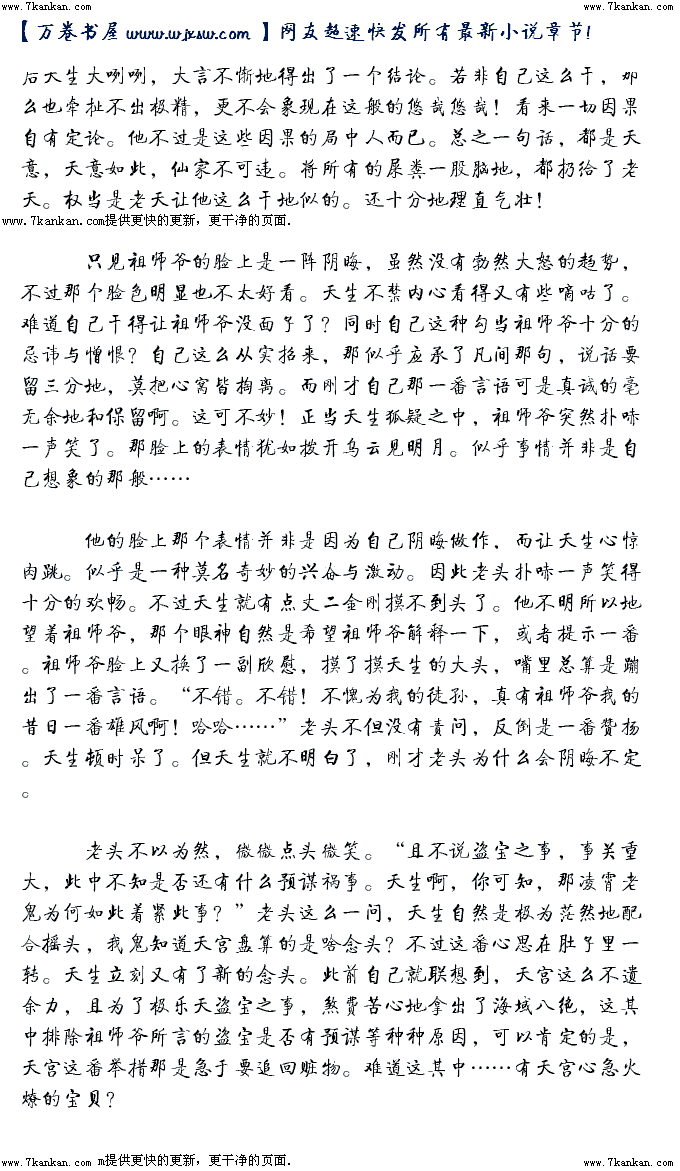 www.7kankan.com www.7kankan.com
【万卷书屋 www.wjxsw.com 】网友超速快发所有最新小说章节!
后天生大咧咧，大言不惭地得出了一个结论。若非自己这么干，那
么也牵扯不出极精，更不会象现在这般的悠哉悠哉！看来一切因果
自有定论。他不过是这些因果的局中人而已。总之一句话，都是天
意，天意如此，仙家不可违。将所有的屎粪一股脑地，都扔给了老
天。权当是老天让他这么干地似的。还十分地理直气壮！
www.7kankan. com提供更快的更新，更干净的页面.
只见祖师爷的脸上是一阵阴晦，虽然没有勃然大怒的趋势，
不过那个脸色明显也不太好看。天生不禁内心看得又有些嘀咕了。
难道自己干得让祖师爷没面子了？同时自己这种勾当祖师爷十分的
忌讳与憎恨？自己这么从实招来，那似乎应承了凡间那句，说话要
留三分地，莫把心窝皆掏离。而刚才自己那一番言语可是真诚的毫
无余地和保留啊。这可不妙！正当天生狐疑之中，祖师爷突然扑哧
一声笑了。那脸上的表情犹如拨开乌云见明月。似乎事情并非是自
己想象的那般……
他的脸上那个表情并非是因为自己阴晦做作，而让天生心惊
肉跳。似乎是一种莫名奇妙的兴奋与激动。因此老头扑哧一声笑得
十分的欢畅。不过天生就有点丈二金刚摸不到头了。他不明所以地
望着祖师爷，那个眼神自然是希望祖师爷解释一下，或者提示一番
。祖师爷脸上又换了一副欣慰，摸了摸天生的大头，嘴里总算是蹦
出了一番言语。“不错。不错！不愧为我的徒孙，真有祖师爷我的
昔日一番雄风啊！哈哈……”老头不但没有责问，反倒是一番赞扬
。天生顿时呆了。但天生就不明白了，刚才老头为什么会阴晦不定
。
老头不以为然，微微点头微笑。“且不说盗宝之事，事关重
大，此中不知是否还有什么预谋祸事。天生啊，你可知，那凌霄老
鬼为何如此着紧此事？”老头这么一问，天生自然是极为茫然地配
合摇头，我鬼知道天宫盘算的是啥念头？不过这番心思在肚子里一
转。天生立刻又有了新的念头。此前自己就联想到，天宫这么不遗
余力，且为了极乐天盗宝之事，煞费苦心地拿出了海域八绝，这其
中排除祖师爷所言的盗宝是否有预谋等种种原因，可以肯定的是，
天宫这番举措那是急于要追回赃物。难道这其中……有天宫心急火
燎的宝贝？
www.7kankan.com m提供更快的更新，更干净的页面. www.7kankan.com